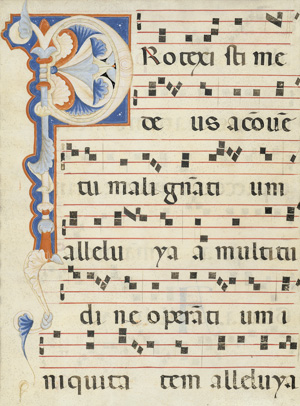 Protexi sti me
de us acōuē
tu mali gnāti um
allelu ya a multitu
di ne operāti um i
niquita tem alleluya